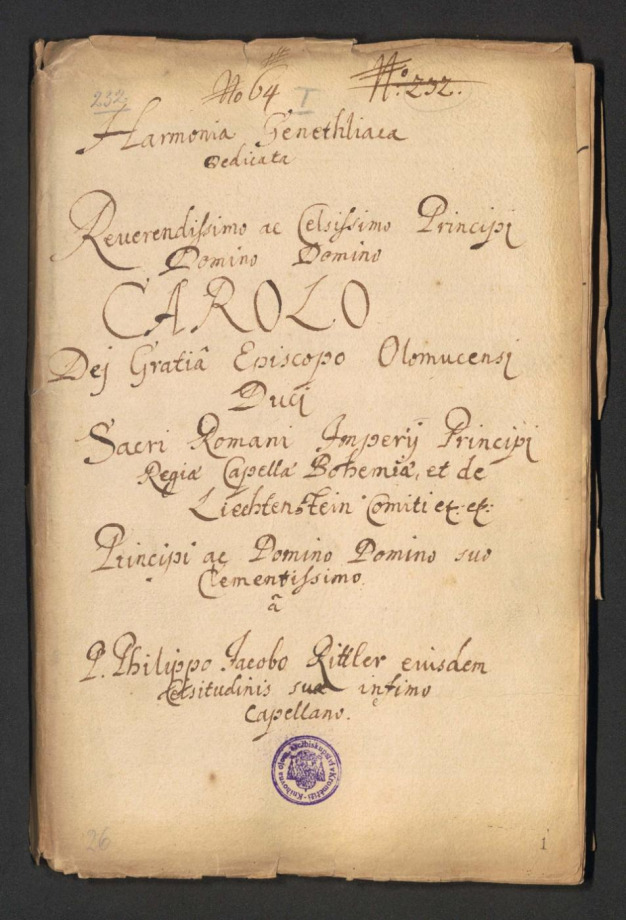 232.
No 64
I
No. 232.
Harmonia Genethliaca
Dedicata
Reverendissimo ac Celsissimo Principi
Domino Domino
CAROLO
Dej Gratiâ Episcopo Olomucensj
Ducj
Sacri Romani Imperij Principj
Regiæ Capellæ Bohemiæ, et de
Liechtenstein Comiti etc: etc:
Principi ac Domino Domino suo
Clementissimo
â
P. Philippo Jacobo Rittler eiusdem
Celsitudinis suæ intimo
Capellano.
26
1